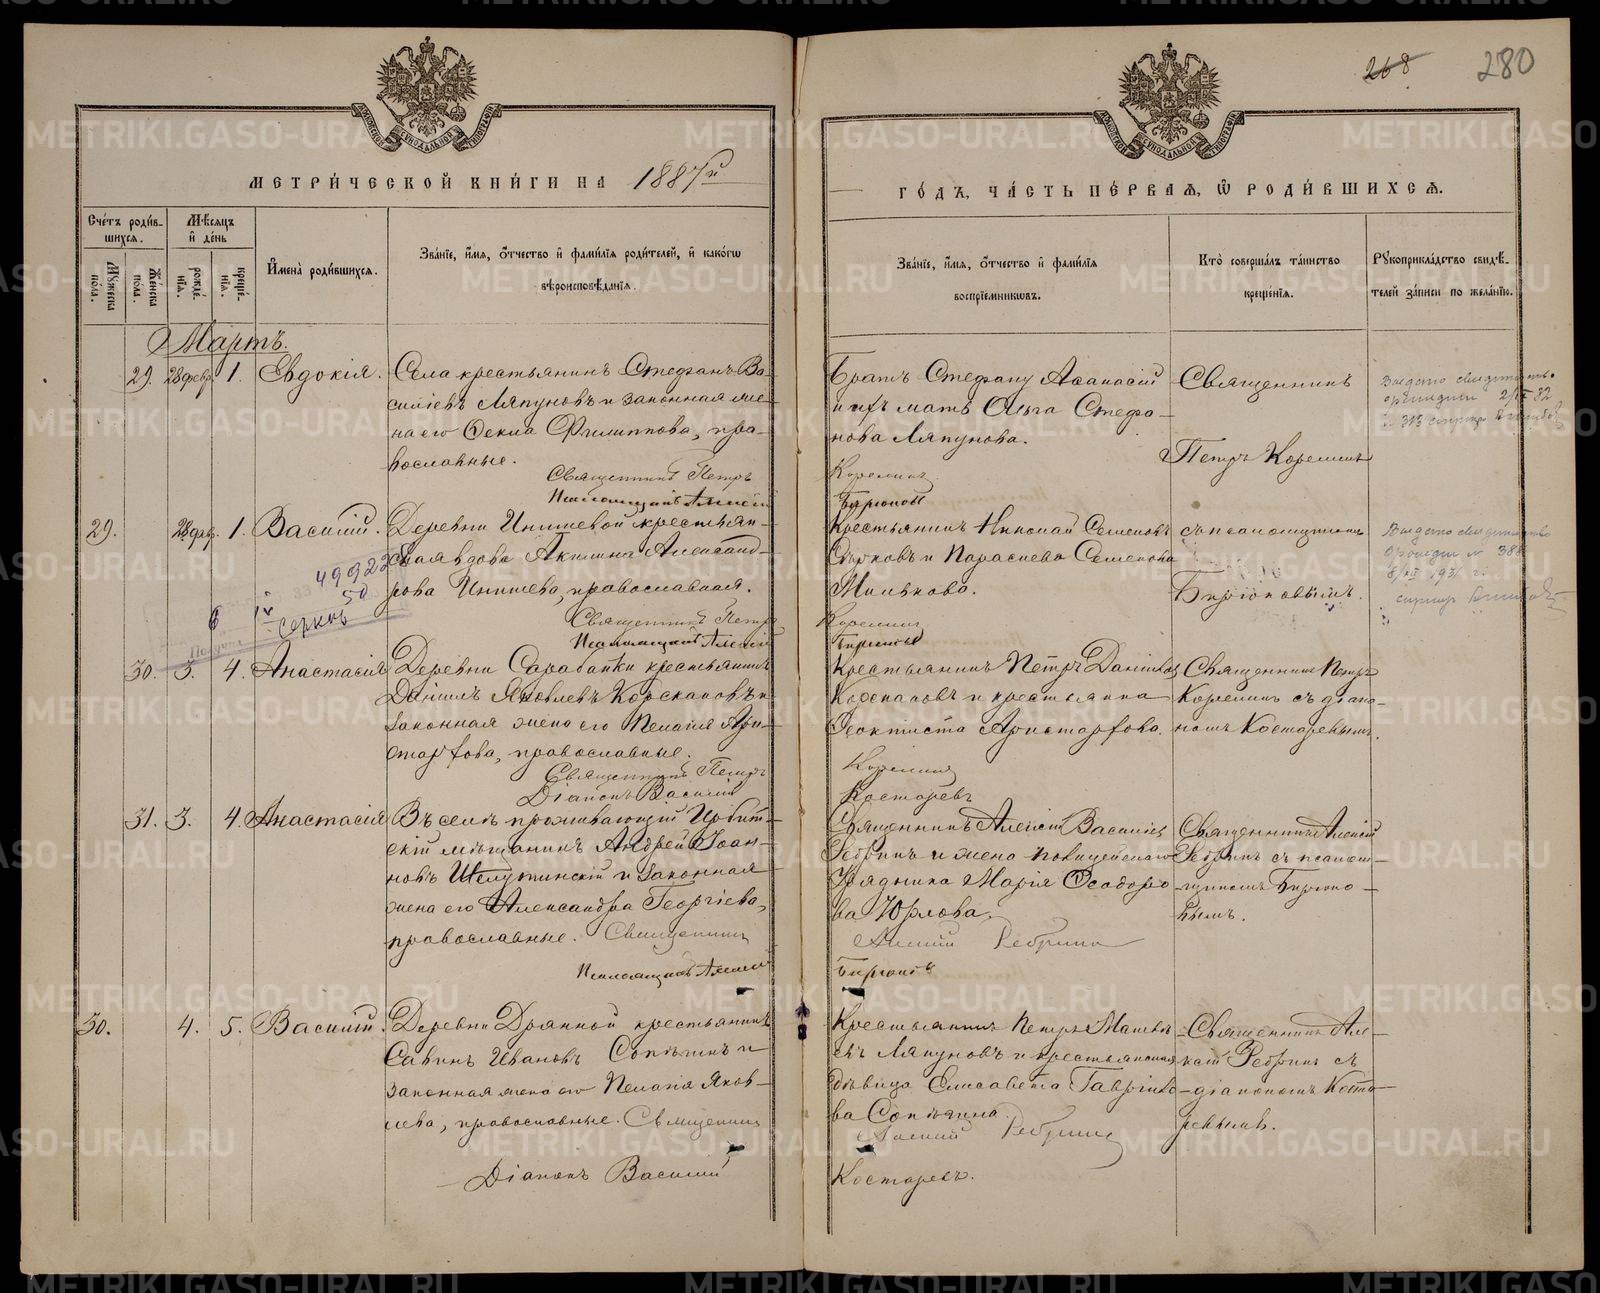 268
280
МЕТРИ́ЧЕСКОЙ КНИ́ГИ НА 1887й
ГО́ДЪ, ЧА́СТЬ ПЕ́РВАЯ, Ѽ РОДИ́ВШИХСѦ.
Сче́тъ роди́в-
шихсѧ.
Мѣ́сѧцъ
и҆ де́нь
Мꙋ́жеска по́ла.
Же́нска по́ла.
рожде́нїѧ.
креще́нїѧ.
И҆мена̀ роди́вшихсѧ.
Зва́нїе, и҆́мѧ, ѻ҆́тчество и҆ фами́лїѧ роди́телей, и҆ како́гѡ
вѣроисповѣ́данїѧ.
Зва́нїе, и҆́мѧ, ѻ҆́тчество и҆ фами́лїѧ
воспрїе́мникѡвъ.
Кто̀ соверша́лъ та́инство
креще́нїѧ.
Рꙋкоприкла́дство свидѣ́-
телей за́писи по жела́нїю.
Мартъ.
29. 28 февр. 1. Евдокія.
Села крестьянинъ Стефанъ Ва-
силіевъ Ляпуновъ и законная же-
на его Ѳекла Филиппова, пра-
вославные.
Священникъ Петръ
Псаломщикъ Алексій
Братъ Стефану Аѳанасій
и ихъ мать Ольга Стефа-
нова Ляпунова.
Корелинъ
Бирюковъ
Священникъ
Петръ Корелинъ
29. 28 февр. 1. Василій.
Деревни Инишевой крестьян-
ская вдова Акилина Александ-
рова Инишева, православная.
Священникъ Петръ
Псаломщикъ Алексій
Крестьянинъ Николай Семеновъ
Сырковъ и Параскева Семенова
Милькова.
Корелинъ
Бирюковъ
съ псаломщикомъ
Бирюковымъ.
30. 3. 4. Анастасія
Деревни Сарабайки крестьянинъ
Даніилъ Яковлевъ Корскановъ и
законная жена его Пелагія Ари-
стархова, православные.
Священникъ Петръ
Діаконъ Василій
Крестьянинъ Петръ Даніиловъ
Корскановъ и крестьянка
Ѳеоктиста Аристархова.
Корелинъ
Костаревъ
Священникъ Петръ
Корелинъ съ діако-
номъ Костаревымъ.
31. 3. 4. Анастасія
Въ селѣ проживающій Ирбит-
скій мѣщанинъ Андрей Іоан-
новъ Шелутинскій и законная
жена его Александра Георгіева,
православные. Священникъ
Псаломщикъ Алексій
Священникъ Алексій Василіевъ
Ребринъ и жена полицейскаго
Урядника Марія Ѳеодоро-
ва Юрлова.
Алексій Ребринъ
Бирюковъ
Священникъ Алексій
Ребринъ съ псалом-
щикомъ Бирюко-
вымъ.
30. 4. 5. Василій.
Деревни Дрянной крестьянинъ
Савинъ Ивановъ Сопѣгинъ и
законная жена его Пелагія Яков-
лева, православные. Священникъ
Діаконъ Василій
Крестьянинъ Петръ Матвѣ-
евъ Ляпуновъ и крестьянская
дѣвица Елисавета Гаврило-
ва Сопѣгина.
Алексій Ребринъ
Костаревъ.
Священникъ Але-
ксій Ребринъ съ
діакономъ Коста-
ревымъ.